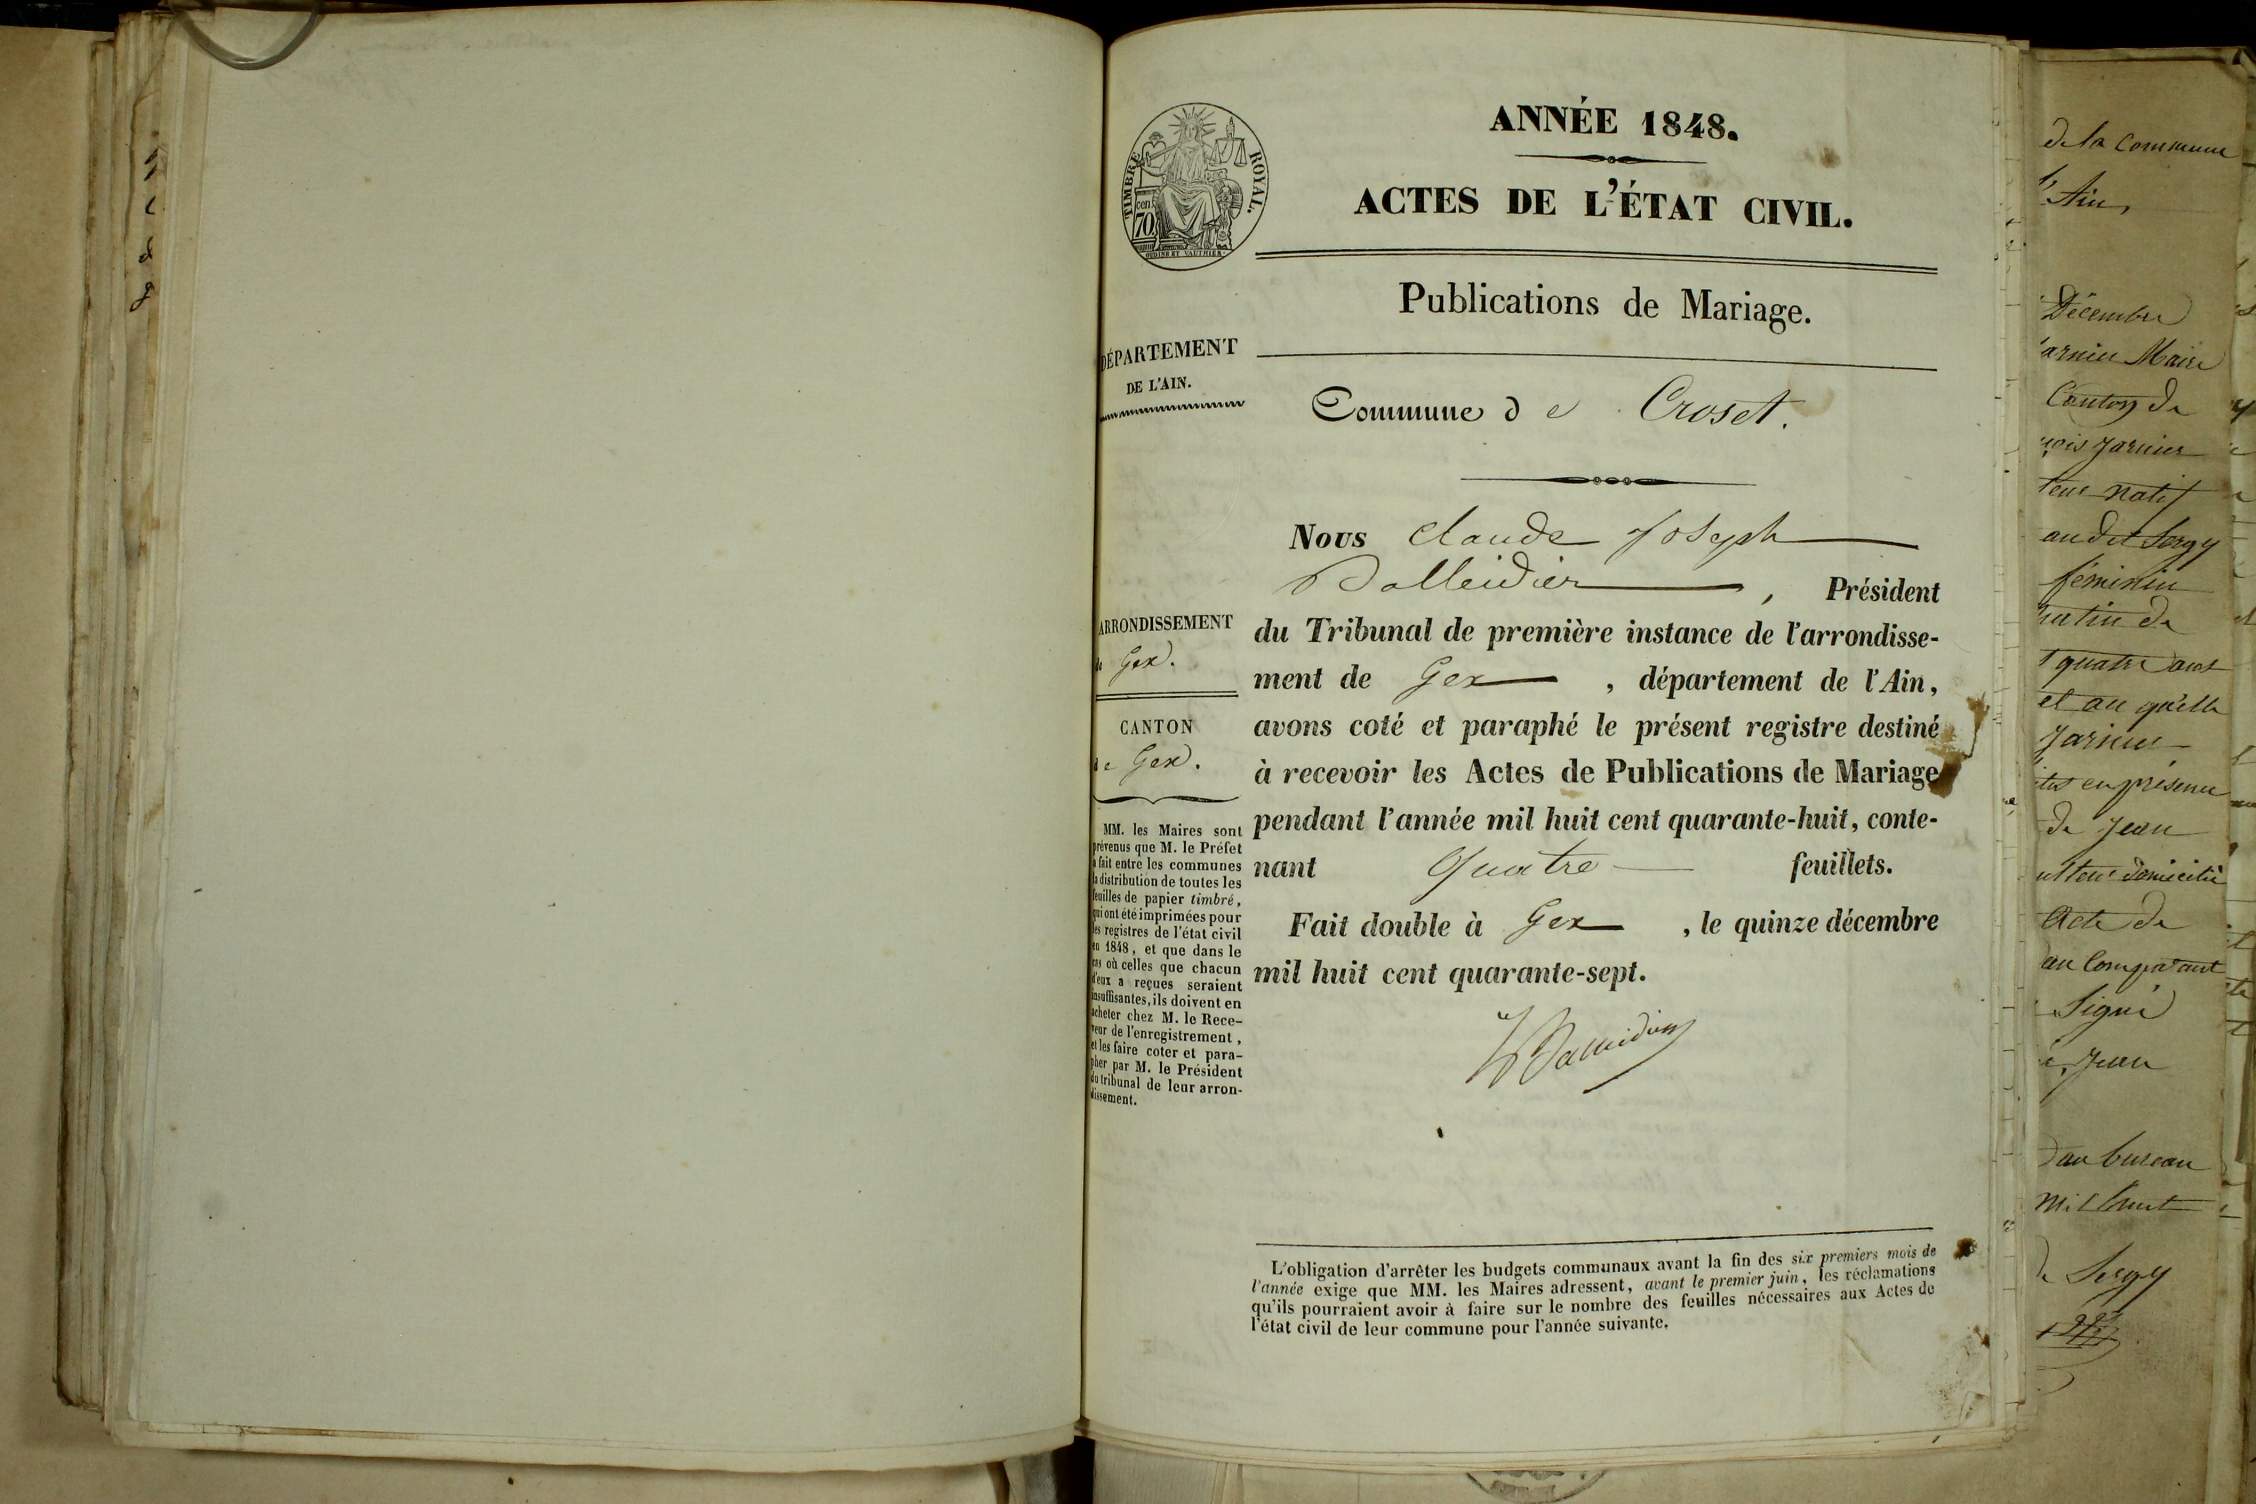 TIMBRE ROYAL.
cen.
70
OUDINE ET VAUTHIER
ANNÉE 1848.
ACTES DE L'ÉTAT CIVIL.
Publications de Mariage.
Commune de Croset.
Nous Claude Joseph
Balleidier, Président
du Tribunal de première instance de l'arrondisse-
ment de Gex, département de l'Ain,
avons coté et paraphé le présent registre destiné
à recevoir les Actes de Publications de Mariage
pendant l'année mil huit cent quarante-huit, conte-
nant Quatre feuillets.
Fait double à Gex, le quinze décembre
mil huit cent quarante-sept.
L'obligation d'arrêter les budgets communaux avant la fin des six premiers mois de
l'année exige que MM. les Maires adressent, avant le premier juin, les réclamations
qu'ils pourraient avoir à faire sur le nombre des feuilles nécessaires aux Actes de
l'état civil de leur commune pour l'année suivante.
DÉPARTEMENT
DE L'AIN.
ARRONDISSEMENT
de Gex.
CANTON
de Gex.
MM. les Maires sont
prévenus que M. le Préfet
a fait entre les communes
la distribution de toutes les
feuilles de papier timbré,
qui ont été imprimées pour
les registres de l'état civil
en 1848, et que dans le
cas où celles que chacun
d'eux a reçues seraient
insuffisantes, ils doivent en
acheter chez M. le Rece-
veur de l'enregistrement,
et les faire coter et para-
pher par M. le Président
du tribunal de leur arron-
dissement.
de la commune
Ain,
Décembre
Maire
Canton de
Jarnier
natif
au dit Sergy
féminin
matin de
quatre ans
et au qu'elle
Jarnier
en présence
de Jean
domicilié
Acte de
au Comparant
Signé
Jean
au bureau
mil huit
de Sergy